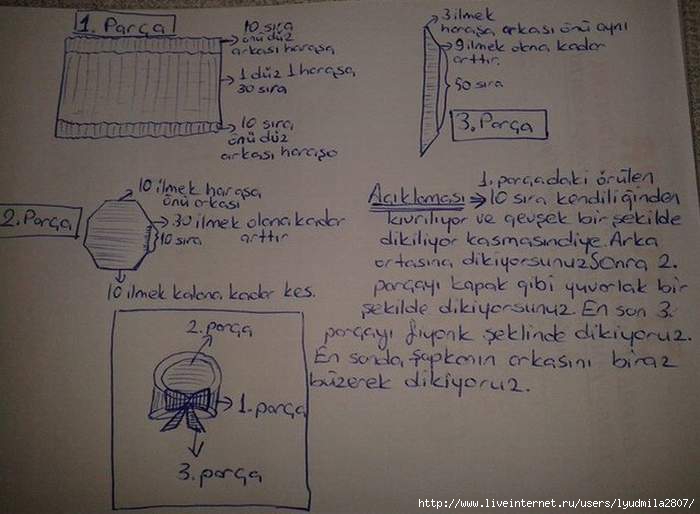 1. Parça
10 sıra
önü düz
arkası haraşa
1 düz 1 haraşa
30 sıra
10 sıra
önü düz
arkası haraşo
3 ilmek
haraşa arkası önü aynı
9 ilmek olana kadar
arttır.
50 sıra
3. Parça
2. Parça
10 ilmek haraşa
önü arkası
30 ilmek olana kadar
arttır
10 sıra
10 ilmek kalana kadar kes.
1. parçadaki örülen
Açıklaması → 10 sıra kendiliğinden
kıvrılıyor ve gevşek bir şekilde
dikiliyor kasmasın diye. Arka
ortasına dikiyorsunuz. Sonra 2.
parçayı kapak gibi yuvorlak bir
şekilde dikiyorsunuz. En son 3.
parçayı fiyonk şeklinde dikiyoruz.
En sonda, şapkanın arkasını biraz
büzerek dikiyoruz.
2. parça
1. parça
3. parça
http://www.liveinternet.ru/users/lyudmila2807/